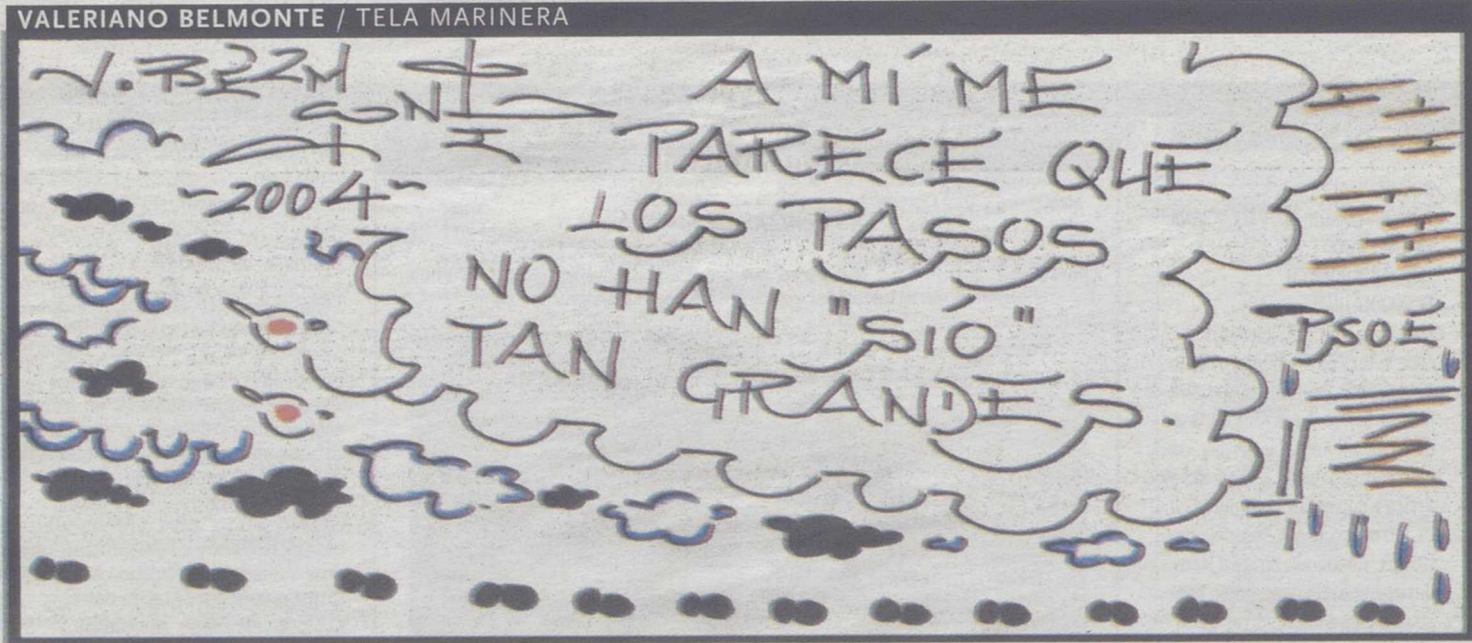 VALERIANO BELMONTE / TELA MARINERA
-2004-
A MÍ ME
PARECE QUE
LOS PASOS
NO HAN "SIÓ"
TAN GRANDES.
PSOE